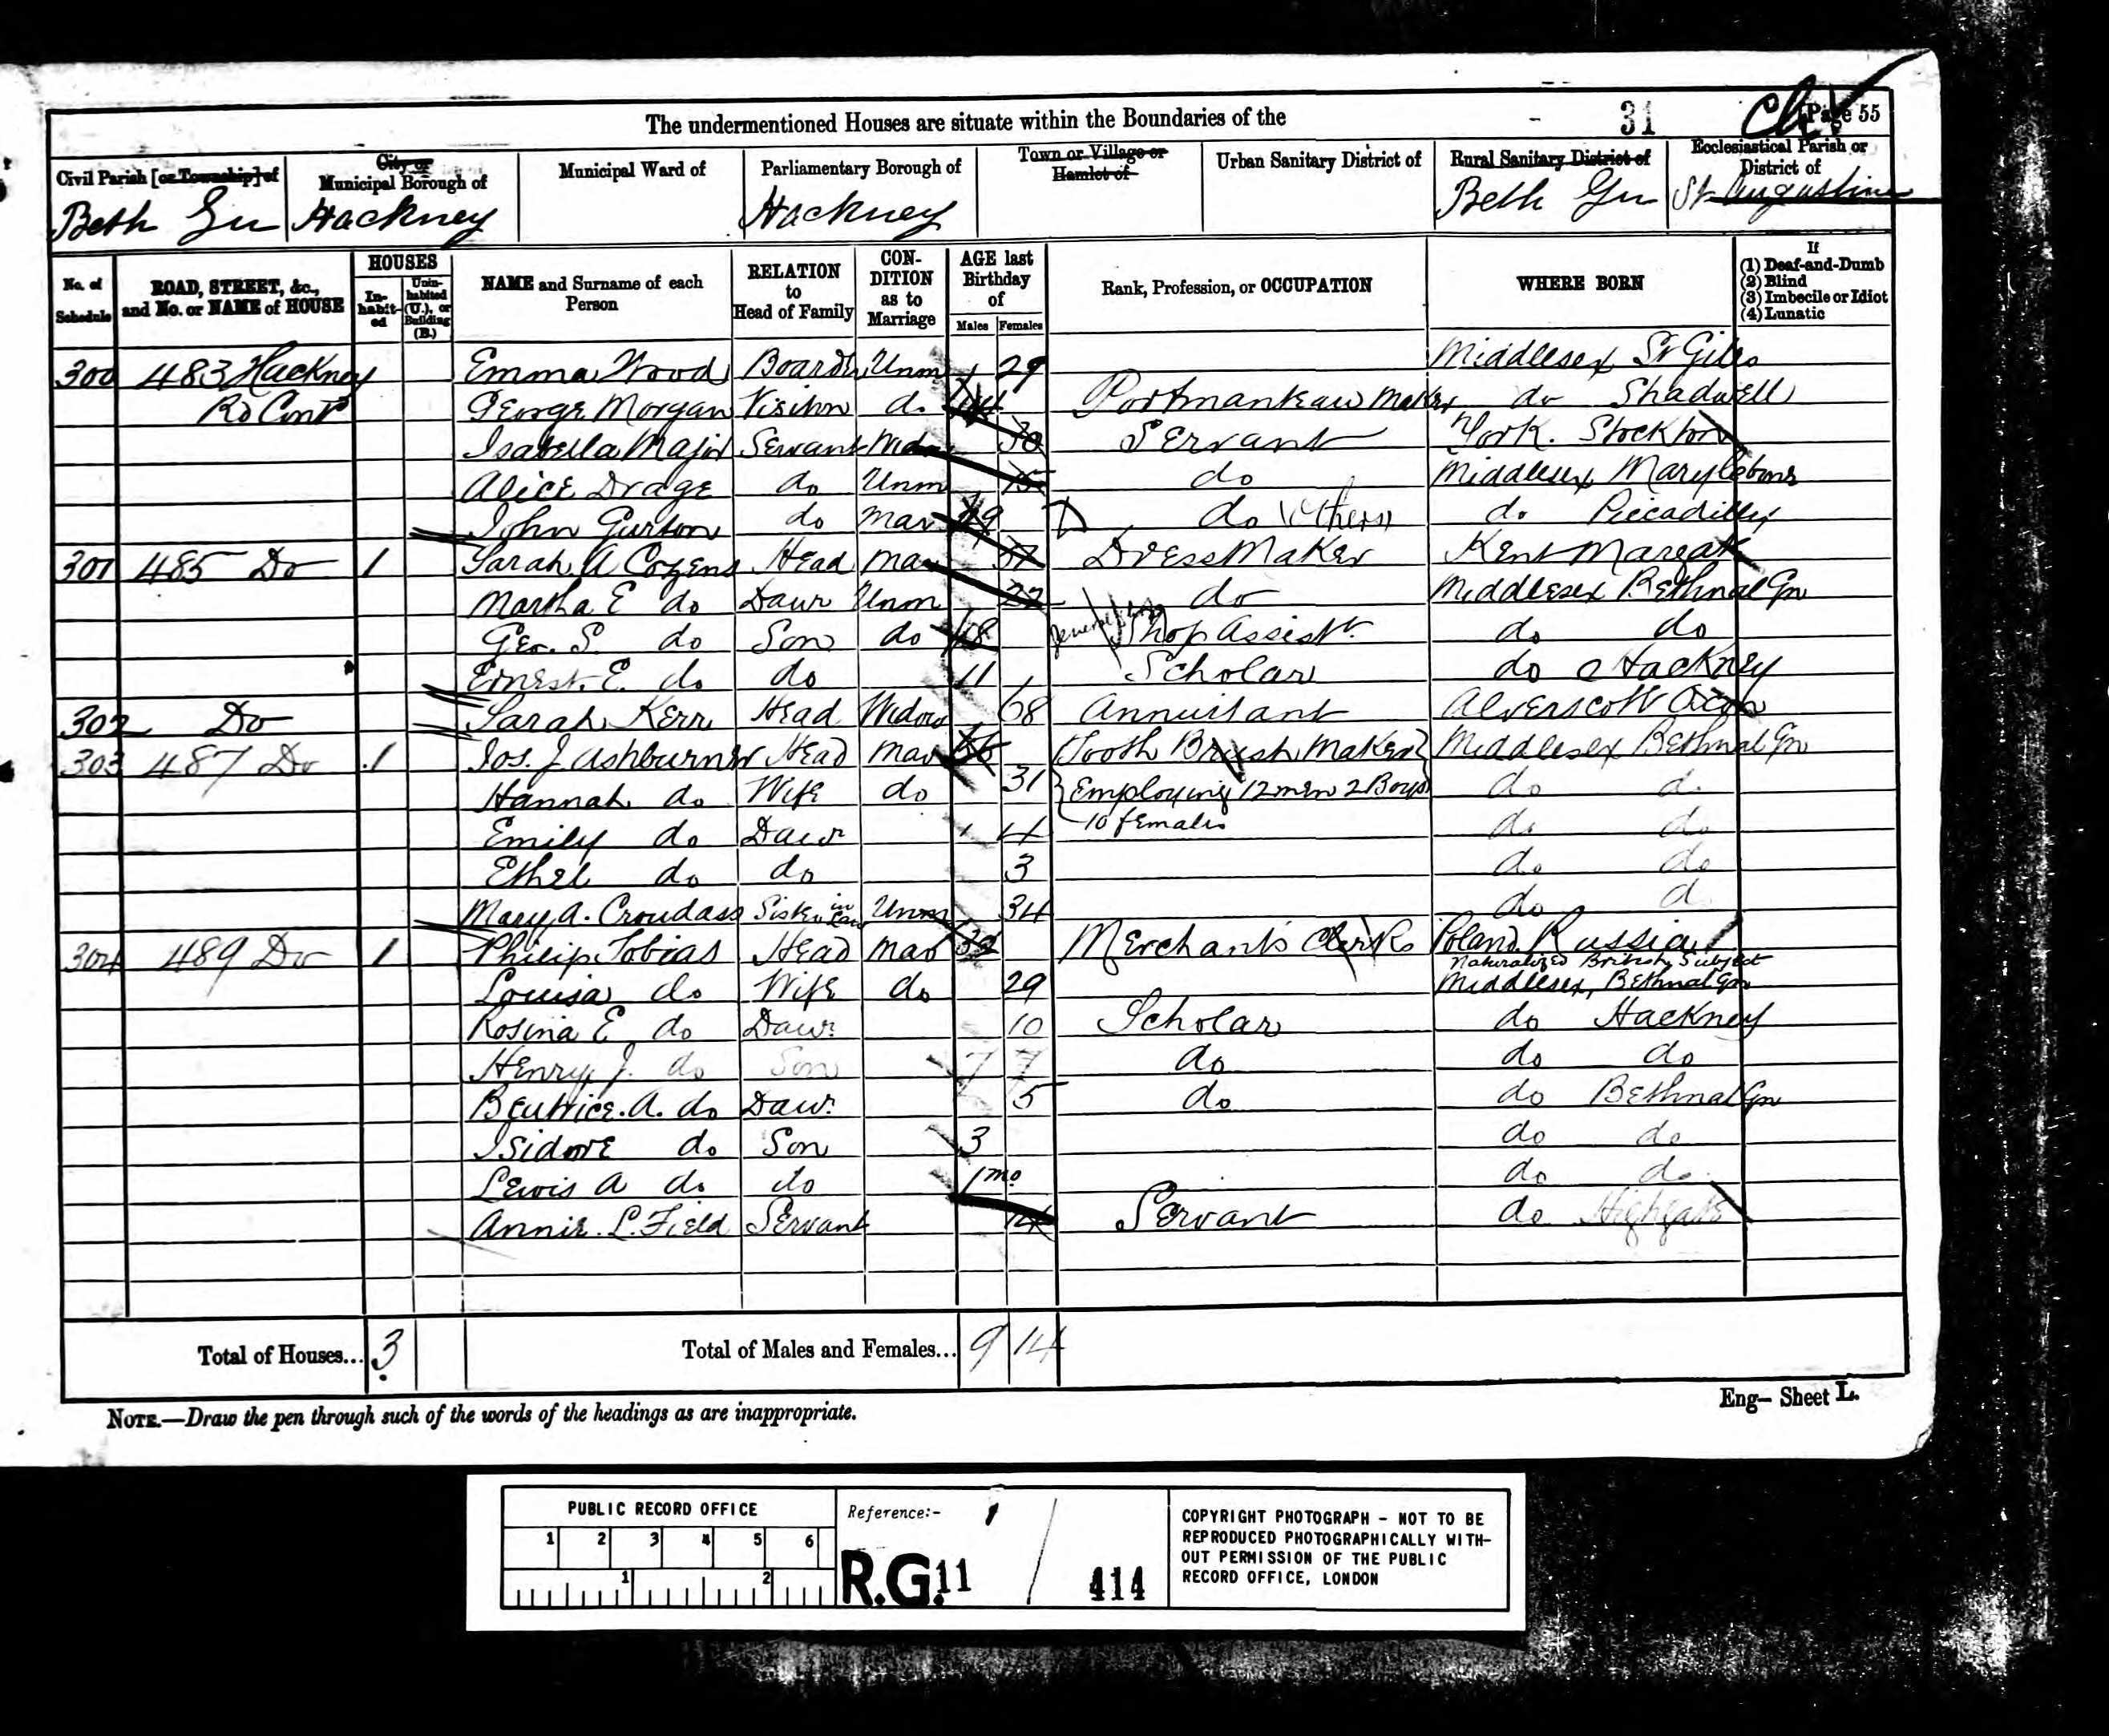 The undermentioned Houses are situate within the Boundaries of the 31 Page 55
Civil Parish [or Township] of City or Municipal Borough of Municipal Ward of Parliamentary Borough of Town or Village or Hamlet of Urban Sanitary District of Rural Sanitary District of Ecclesiastical Parish or District of
Beth Gn Hackney Hackney Beth Gn St Augustine
No. of Schedule ROAD, STREET, &c., and No. or NAME of HOUSE HOUSES Inhabited Uninhabited (U.), or Building (B.) NAME and Surname of each Person RELATION to Head of Family CONDITION as to Marriage AGE last Birthday of Males Females Rank, Profession, or OCCUPATION WHERE BORN If (1) Deaf-and-Dumb (2) Blind (3) Imbecile or Idiot (4) Lunatic
300 483 Hackney Emma Wood Boarder Unm 29 Middlesex St Giles
Rd Cont George Morgan Visitor do Portmanteau Maker do Shadwell
Isabella Major Servant Wid 30 Servant York. Stockton
Alice Drage do Unm 15 do Middlesex Marylebone
John Gurton do Mar 29 do do Piccadilly
301 485 Do 1 Sarah A Cozens Head Mar 37 Dress Maker Kent Margate
Martha E do Daur Unm 22 do Middlesex Bethnal Gn
Geo. S. do Son do 18 Shop Assistt do do
Ernest. E. do do 11 Scholar do Hackney
302 Do Sarah Kerr Head Widow 68 Annuitant Alverscott Oxon
303 487 Do 1 Jos. J Ashburner Head Mar Tooth Brush Maker Middlesex Bethnal Gn
Hannah do Wife do 31 Employing 12 men 2 Boys do do
Emily do Daur 4 10 females do do
Ethel do do 3 do do
Mary A. Croudass Sister in Law Unm 34 do do
304 489 Do 1 Philip Tobias Head Mar 32 Merchants Clerk Poland Russia
Naturalized British Subject
Louisa do Wife do 29 Middlesex, Bethnal Gn
Rosina E do Daur. 10 Scholar do Hackney
Henry J. do Son 7 7 do do do
Beatrice. A. do Daur. 5 do do Bethnal Gn
Isidore do Son 3 do do
Lewis A do do 1 mo do do
Annie. L. Field Servant 14 Servant do Highgate
Total of Houses... 3 Total of Males and Females... 9 14
Eng- Sheet L.
NOTE.—Draw the pen through such of the words of the headings as are inappropriate.
PUBLIC RECORD OFFICE
1 2 3 4 5 6
1 2
Reference:-
R.G. 11 / 414
COPYRIGHT PHOTOGRAPH - NOT TO BE
REPRODUCED PHOTOGRAPHICALLY WITH-
OUT PERMISSION OF THE PUBLIC
RECORD OFFICE, LONDON